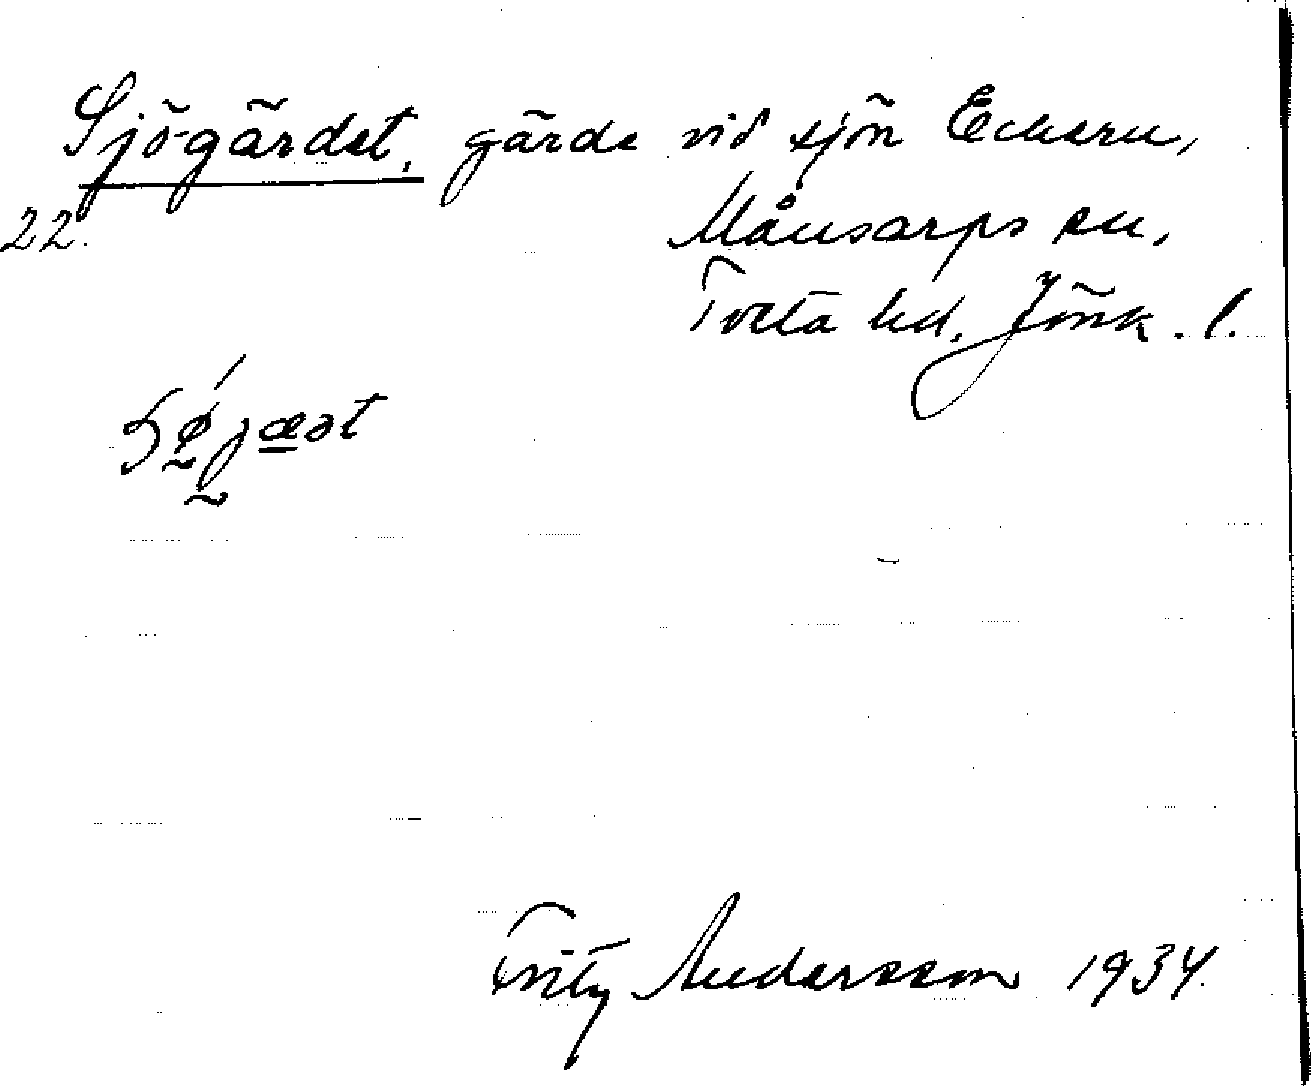 Sjögärdet, gärde vid sjön Eckern,
22. Månsarps sn,
Tveta hd, Jönk. l.
Fritz Andersson 1934.